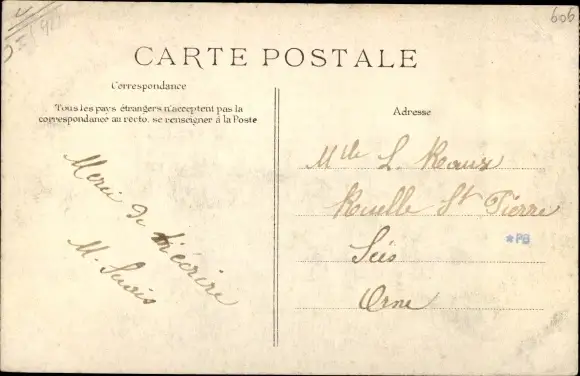 606
CARTE POSTALE
Correspondance
Tous les pays étrangers n'acceptent pas la
correspondance au recto, se renseigner à la Poste
Adresse
Merci de m'écrire
Mlle L.
Ruelle St Pierre
*PB
Orne